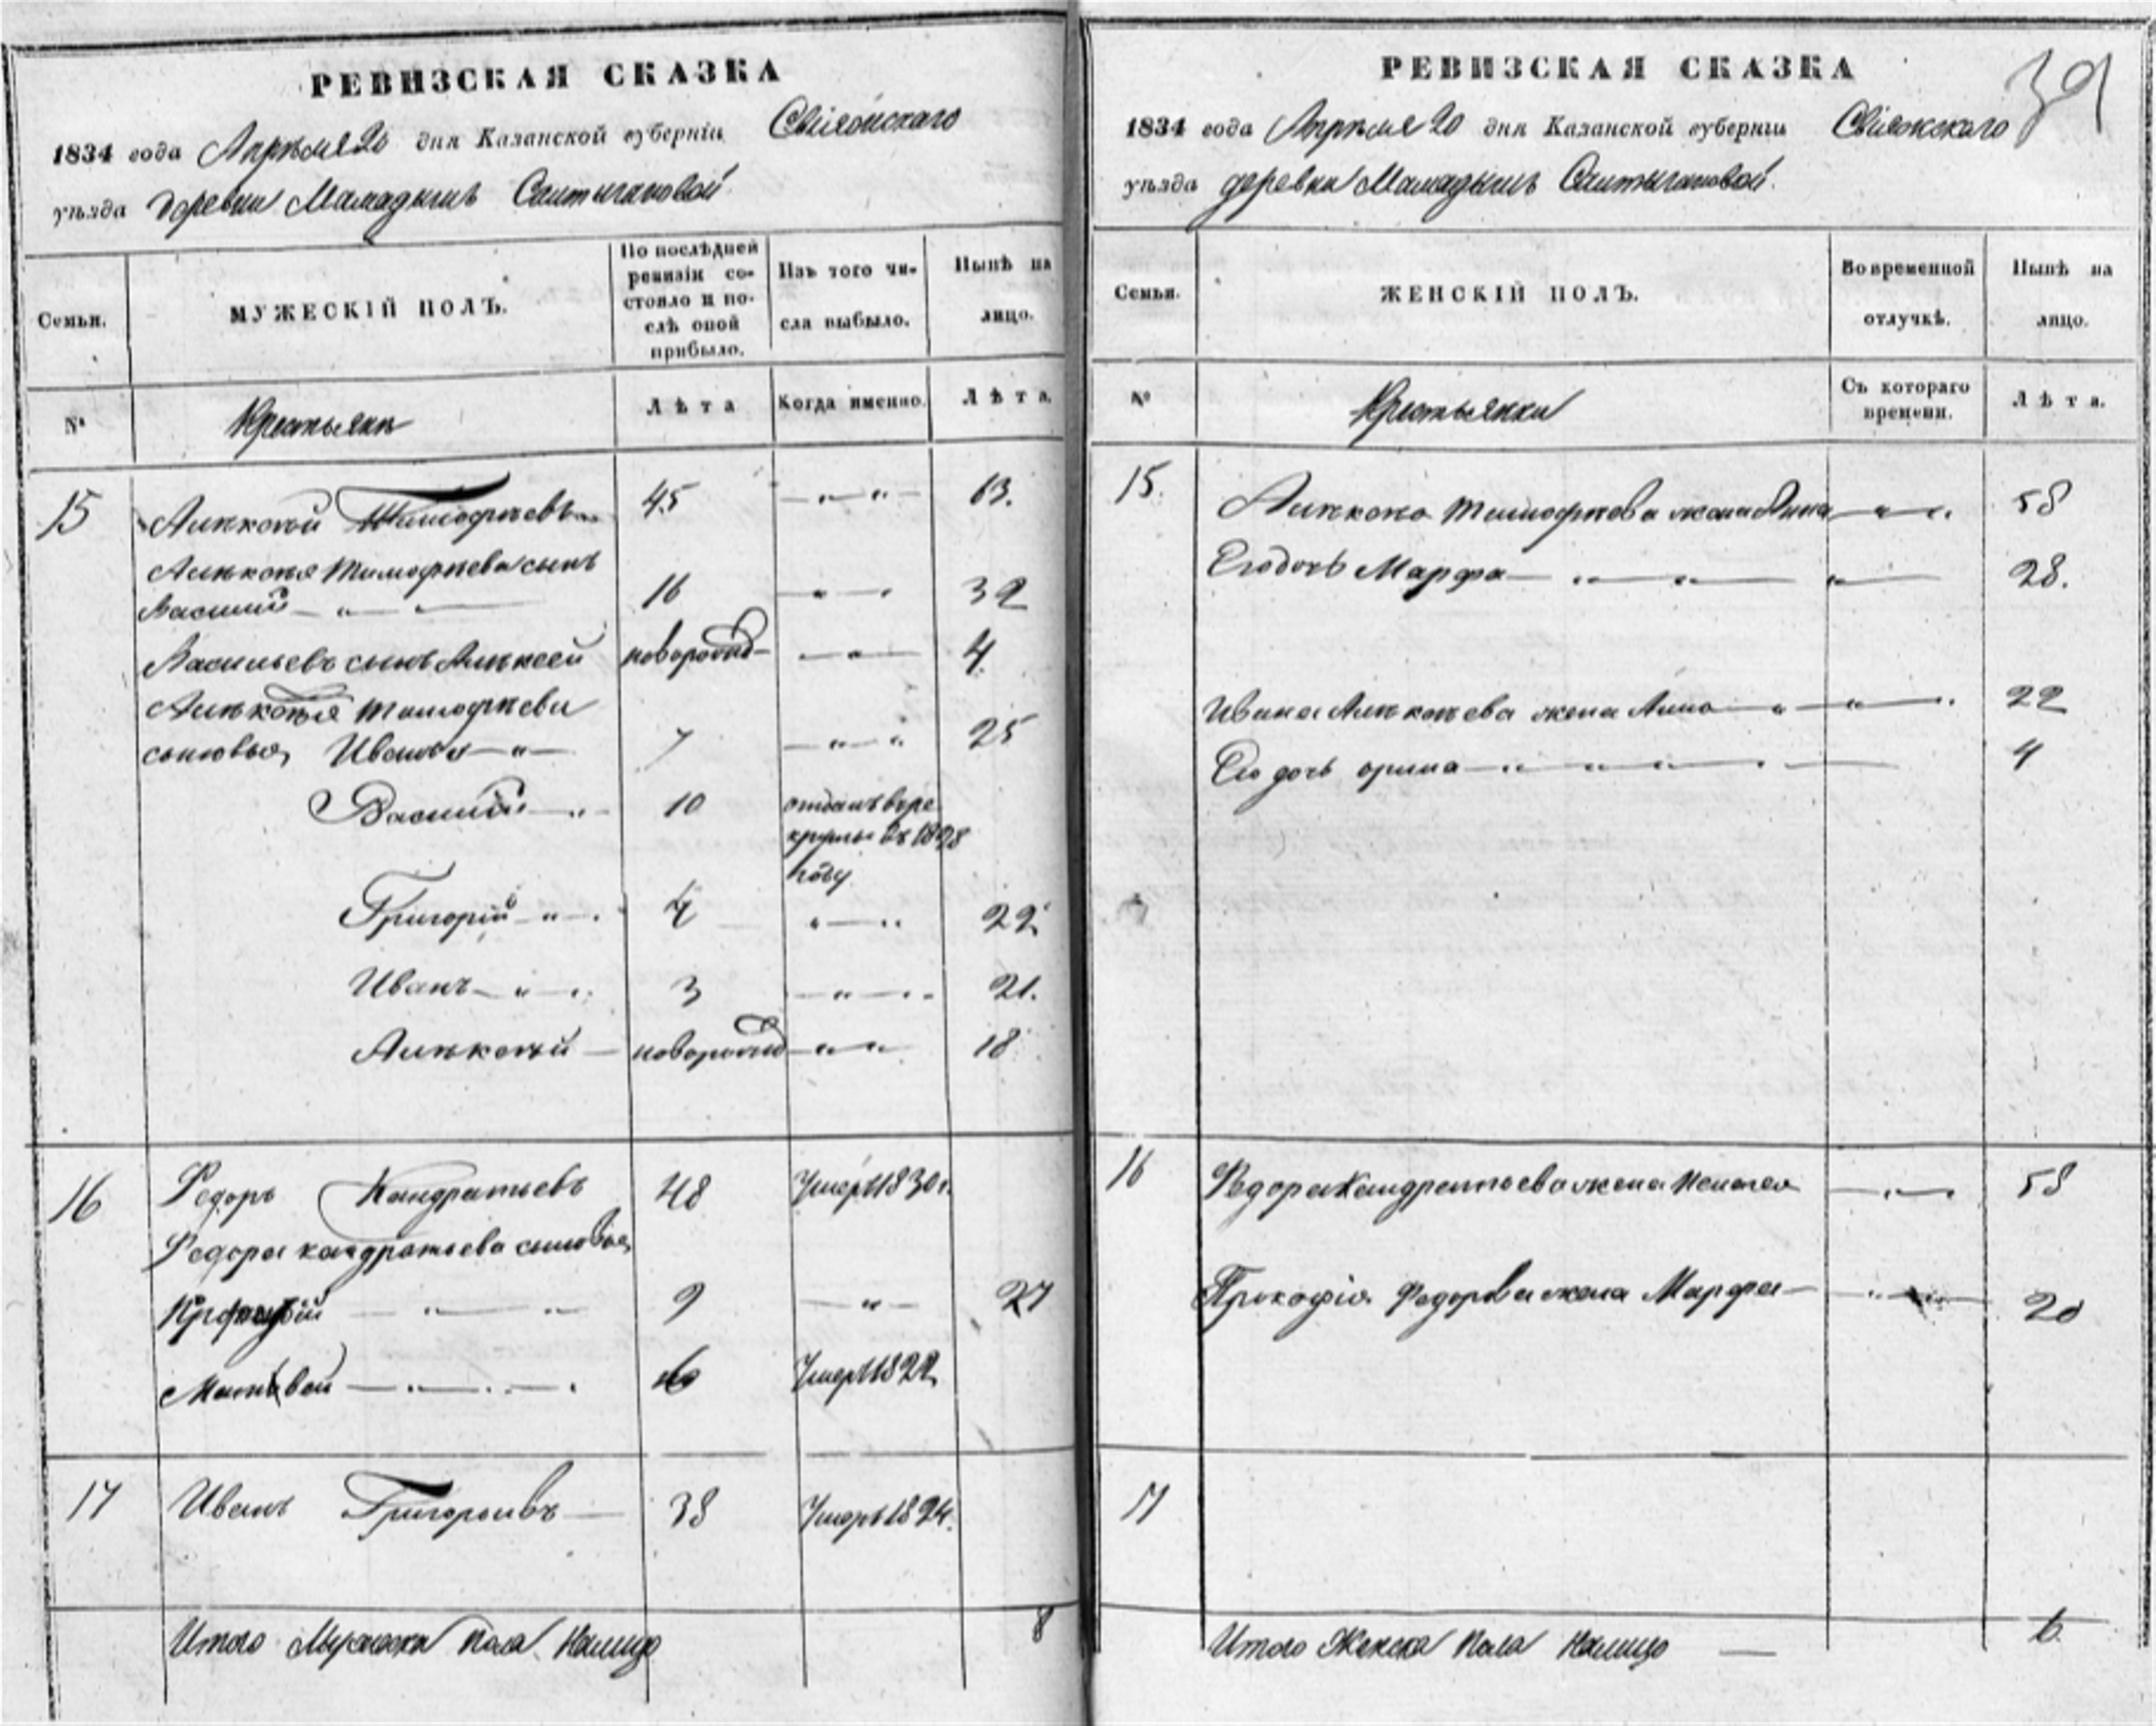 РЕВИЗСКАЯ СКАЗКА
1834 года Апреля 20 дня Казанской губерніи Свіяжскаго
уѣзда деревни Мамадышъ
Семьи.
МУЖЕСКІЙ ПОЛЪ.
По послѣдней
ревизіи со-
стояло и по-
слѣ оной
прибыло.
Изъ того чи-
сла выбыло.
Нынѣ на
лицо.
№
Крестьяне
Лѣта
Когда именно.
Лѣта.
15 Алексѣй Тимофѣевъ 45 — „ „ — 63.
Алексѣя Тимофѣева сынъ
Василій — „ — „ — 16 — „ — „ 32
Васильевъ сынъ Алексѣй новорожд — „ — 4.
Алексѣя Тимофѣева
сыновья, Иванъ — „ — 7 — „ „ 25
Василій — „ — 10 отданъ въ ре
круты въ 1828
году
Григорій — „ — 4 „ — „ 22
Иванъ — „ — 3 — „ — 21.
Алексѣй — новорожд — „ „ 18
16 Федоръ Кандратьевъ 48 Умеръ 1830 г.
Федора Кандратьева сыновья,
— „ — „ 9 — „ — 27
Матвѣй — „ — „ — Умеръ 1822
17 Иванъ Григорьевъ — 38 Умеръ 1824.
Итого Мужеска пола Налицо 8
РЕВИЗСКАЯ СКАЗКА
39
1834 года Апреля 20 дня Казанской губерніи Свіяжскаго
уѣзда деревни Мамадышъ
Семьи.
ЖЕНСКІЙ ПОЛЪ.
Во временной
отлучкѣ.
Нынѣ на
лицо.
№
Крестьянки
Съ котораго
времени.
Лѣта.
15. Алексѣя Тимофѣева жена — „ — 58
Его дочь Марфа — „ — „ — „ — 28.
Ивана Алексѣева жена Анна — „ — „ — 22
Его дочь орина — „ — „ — „ — 4
16 Федора Кандратьева жена — „ — 58
Прокофія Федорова жена Марфа — „ — 20
17
Итого Женска пола Налицо — 6